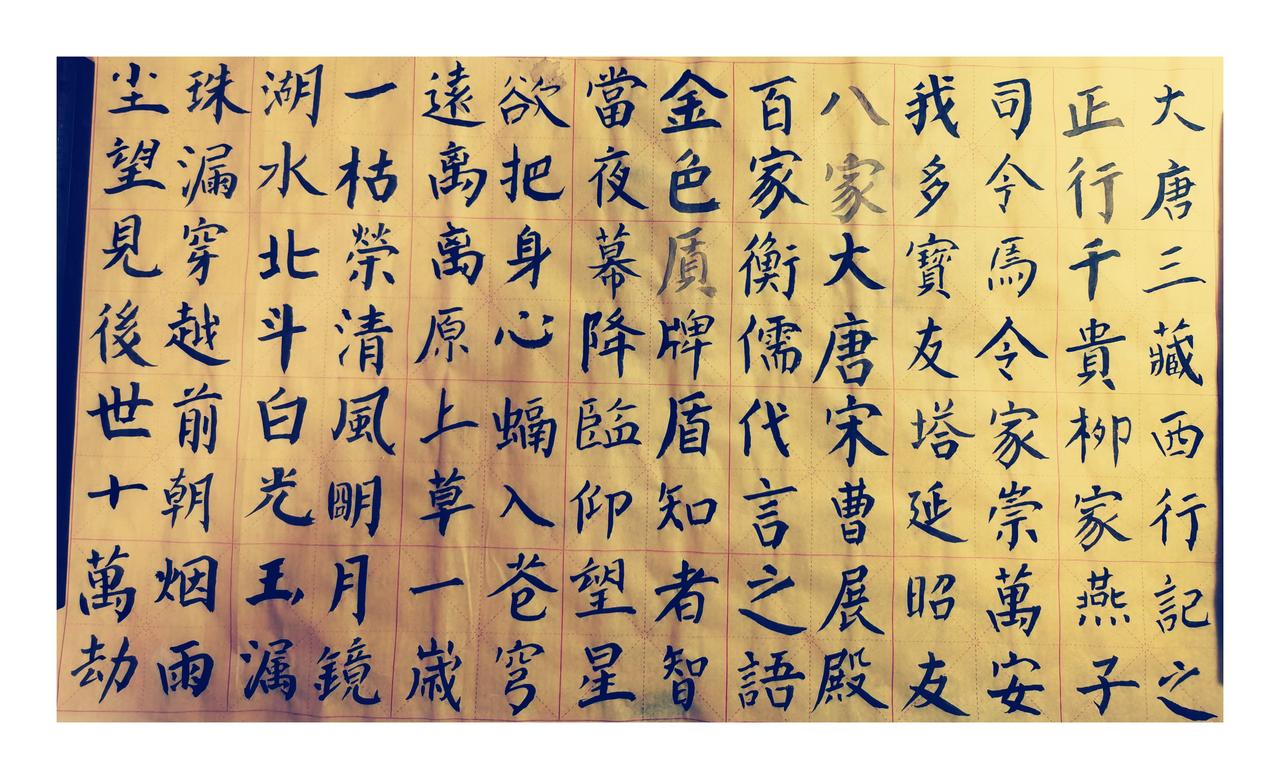 大唐三藏西行記之
正行千貴柳家燕子
司令馬令家崇萬安
我多寶友塔延昭友
八家大唐宋曹展殿
百家衡儒代言之語
金色盾牌盾知者智
當夜幕降臨仰望星
欲把身心融入苍穹
遠离离原上草一歲
一枯榮清風明月鏡
湖水北斗白光玉漏
珠漏穿越前朝烟雨
尘望見後世十萬劫